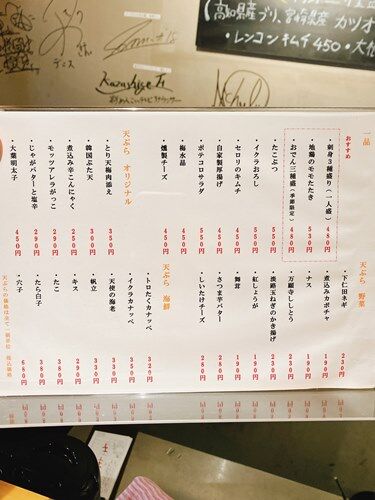 (高知県産ブリ、宮崎県産カツオ
・レンコンキムチ450・大根
デニス
さん
Kazushige T.
一品
おすすめ
・刺身3種盛り(一人盛) 480円
・地鶏のモモたたき 530円
・おでん三種盛(季節限定) 480円
・たこぶつ 450円
・イクラおろし 550円
・セロリのキムチ 350円
・自家製厚揚げ 450円
・ポテコロサラダ 450円
・梅水晶 450円
・燻製チーズ 450円
天ぷら オリジナル
・とり天梅肉添え 350円
・韓国ぶた天 300円
・煮込み辛こんにゃく 250円
・モッツアレラがっこ 290円
・じゃがバターと塩辛 290円
・大葉明太子 450円
天ぷら 野菜
・下仁田ネギ 230円
・煮込みカボチャ 190円
・ナス 190円
・万願寺ししとう 230円
・淡路玉ねぎのかき揚げ 230円
・紅しょうが 190円
・舞茸
・さつま芋バター 280円
・しいたけチーズ 280円
天ぷら 海鮮
・トロたくカナッペ 320円
・イクラカナッペ 350円
・天使の海老 330円
・帆立 330円
・キス 280円
・たこ 380円
・たら白子 380円
・穴子 680円
天ぷらの価格は全て一個単位 税込価格